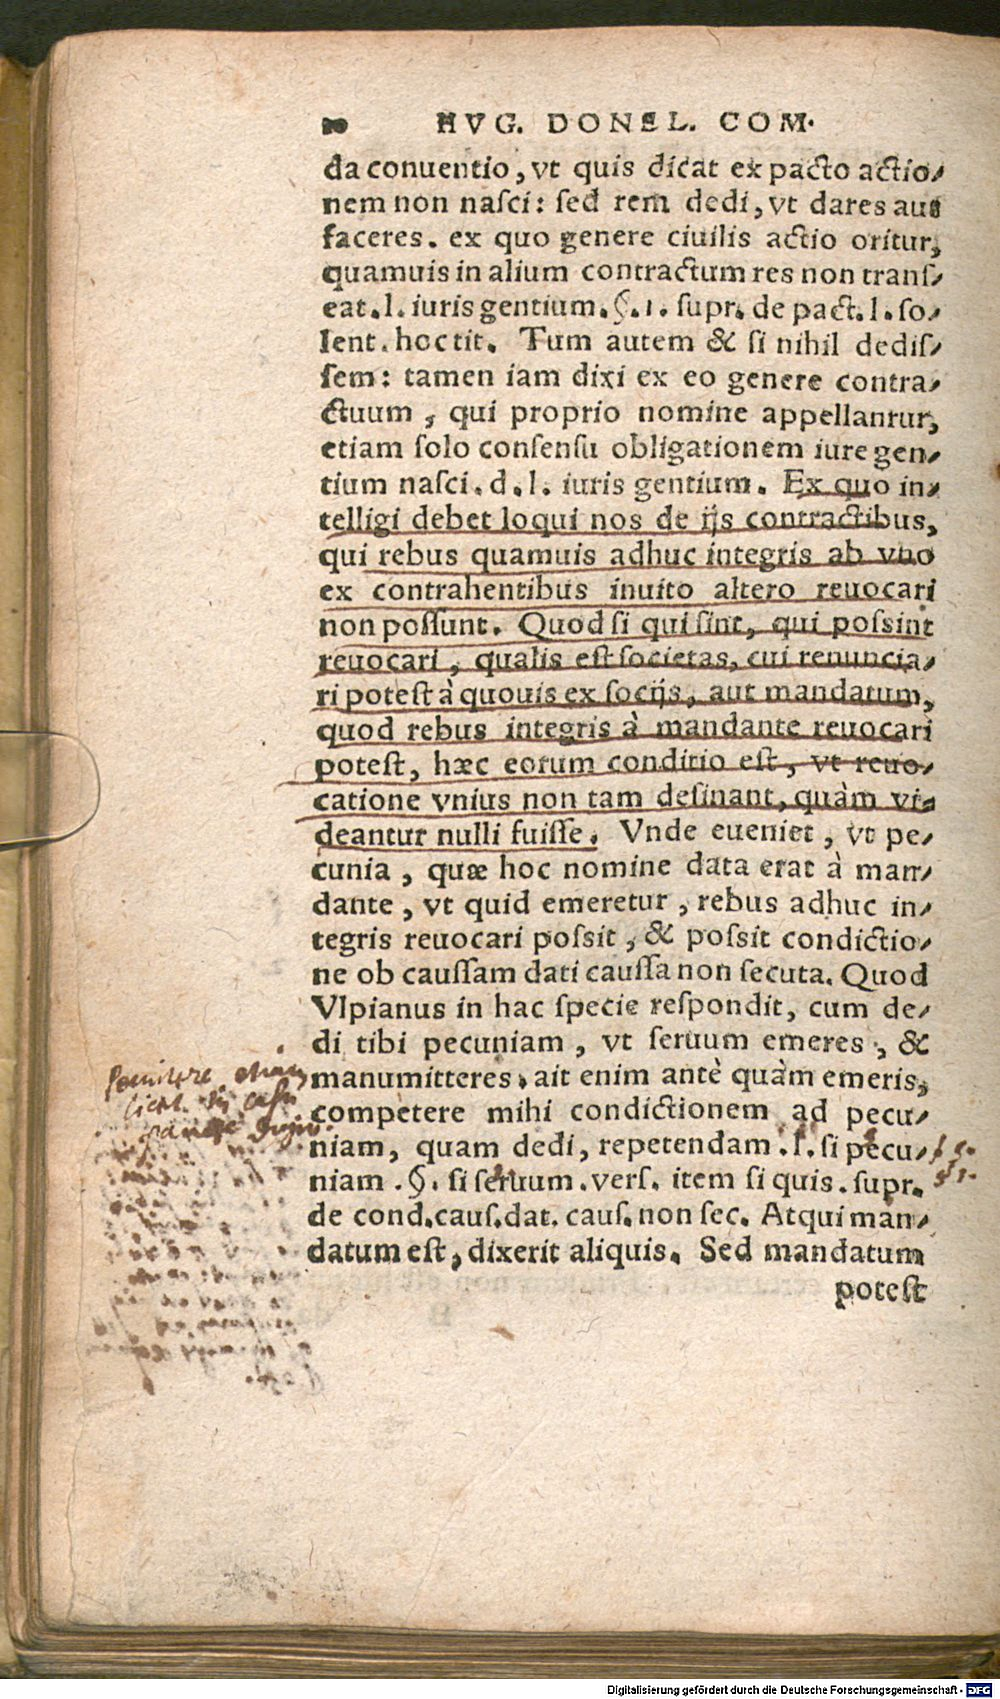 20 HVG. DONEL. COM.
da conuentio, vt quis dicat ex pacto actio-
nem non nasci: sed rem dedi, vt dares aut
faceres. ex quo genere ciuilis actio oritur,
quamuis in alium contractum res non trans-
eat. l. iuris gentium. §. 1. supr. de pact. l. so-
lent. hoc tit. Tum autem & si nihil dedis-
sem: tamen iam dixi ex eo genere contra-
ctuum, qui proprio nomine appellantur,
etiam solo consensu obligationem iure gen-
tium nasci. d. l. iuris gentium. Ex quo in-
telligi debet loqui nos de ijs contractibus,
qui rebus quamuis adhuc integris ab vno
ex contrahentibus inuito altero reuocari
non possunt. Quod si qui sint, qui possint
reuocari, qualis est societas, cui renuncia-
ri potest à quouis ex socijs, aut mandatum,
quod rebus integris à mandante reuocari
potest, hæc eorum conditio est, vt reuo-
catione vnius non tam desinant, quàm vi-
deantur nulli fuisse. Vnde eueniet, vt pe-
cunia, quæ hoc nomine data erat à man-
dante, vt quid emeretur, rebus adhuc in-
tegris reuocari possit, & possit condictio-
ne ob caussam dati caussa non secuta. Quod
Vlpianus in hac specie respondit, cum de-
di tibi pecuniam, vt seruum emeres, &
manumitteres, ait enim antè quàm emeris,
competere mihi condictionem ad pecu-
niam, quam dedi, repetendam. l. si pecu-
niam. §. si seruum. vers. item si quis. supr.
de cond. caus. dat. caus. non sec. Atqui man-
datum est, dixerit aliquis. Sed mandatum
potest
Poenitere etiam
licet in casu
Digitalisierung gefördert durch die Deutsche Forschungsgemeinschaft - DFG